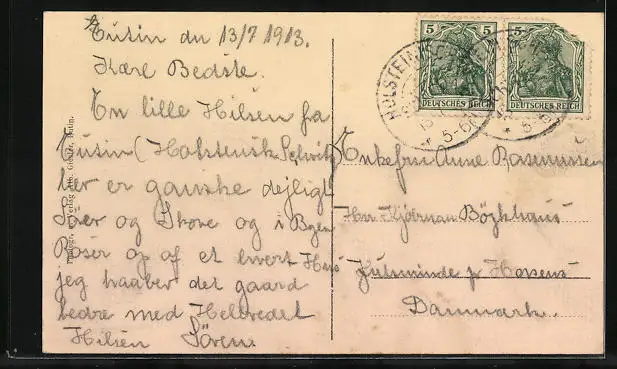 Eutin du 13/7 1913.
Kære Bedste.
En lille Hilsen fra
Eutin (Holstensk Schweitz)
her er ganske dejligt
Søer og Skove og i Byen
Roser op af et hvert Hus
jeg haaber det gaard
bedre med Helbredet
Hilsen Søren.
5 5
DEUTSCHES REICH
5
DEUTSCHES REICH
HOLSTEIN
5-6
Enkefru Anne Rasmussen
Hr Bøgkhaus
Julsminde pr Horsens
Danmark.